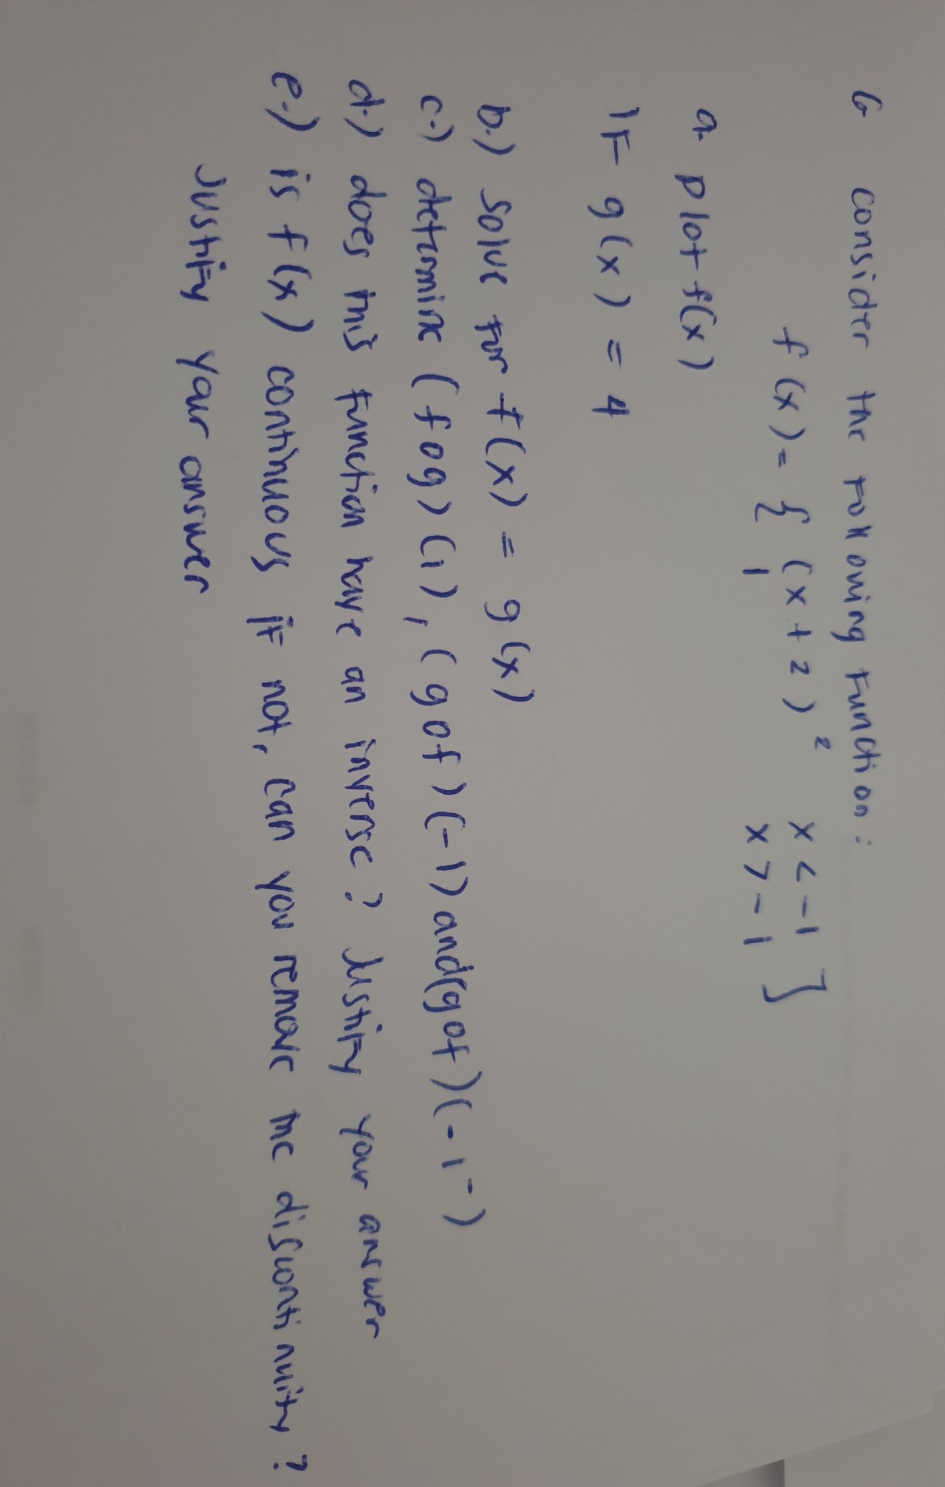 6 consider the following function:
f(x) = { (x+2)² x < -1
1 x > -1 }
a plot f(x)
IF g(x) = 4
b.) solve for f(x) = g(x)
c.) determine (fog)(1), (gof)(-1) and(gof)(-1⁻)
d.) does this function have an inverse? Justify your answer
e.) is f(x) continuous if not, can you remove the discontinuity?
Justify your answer